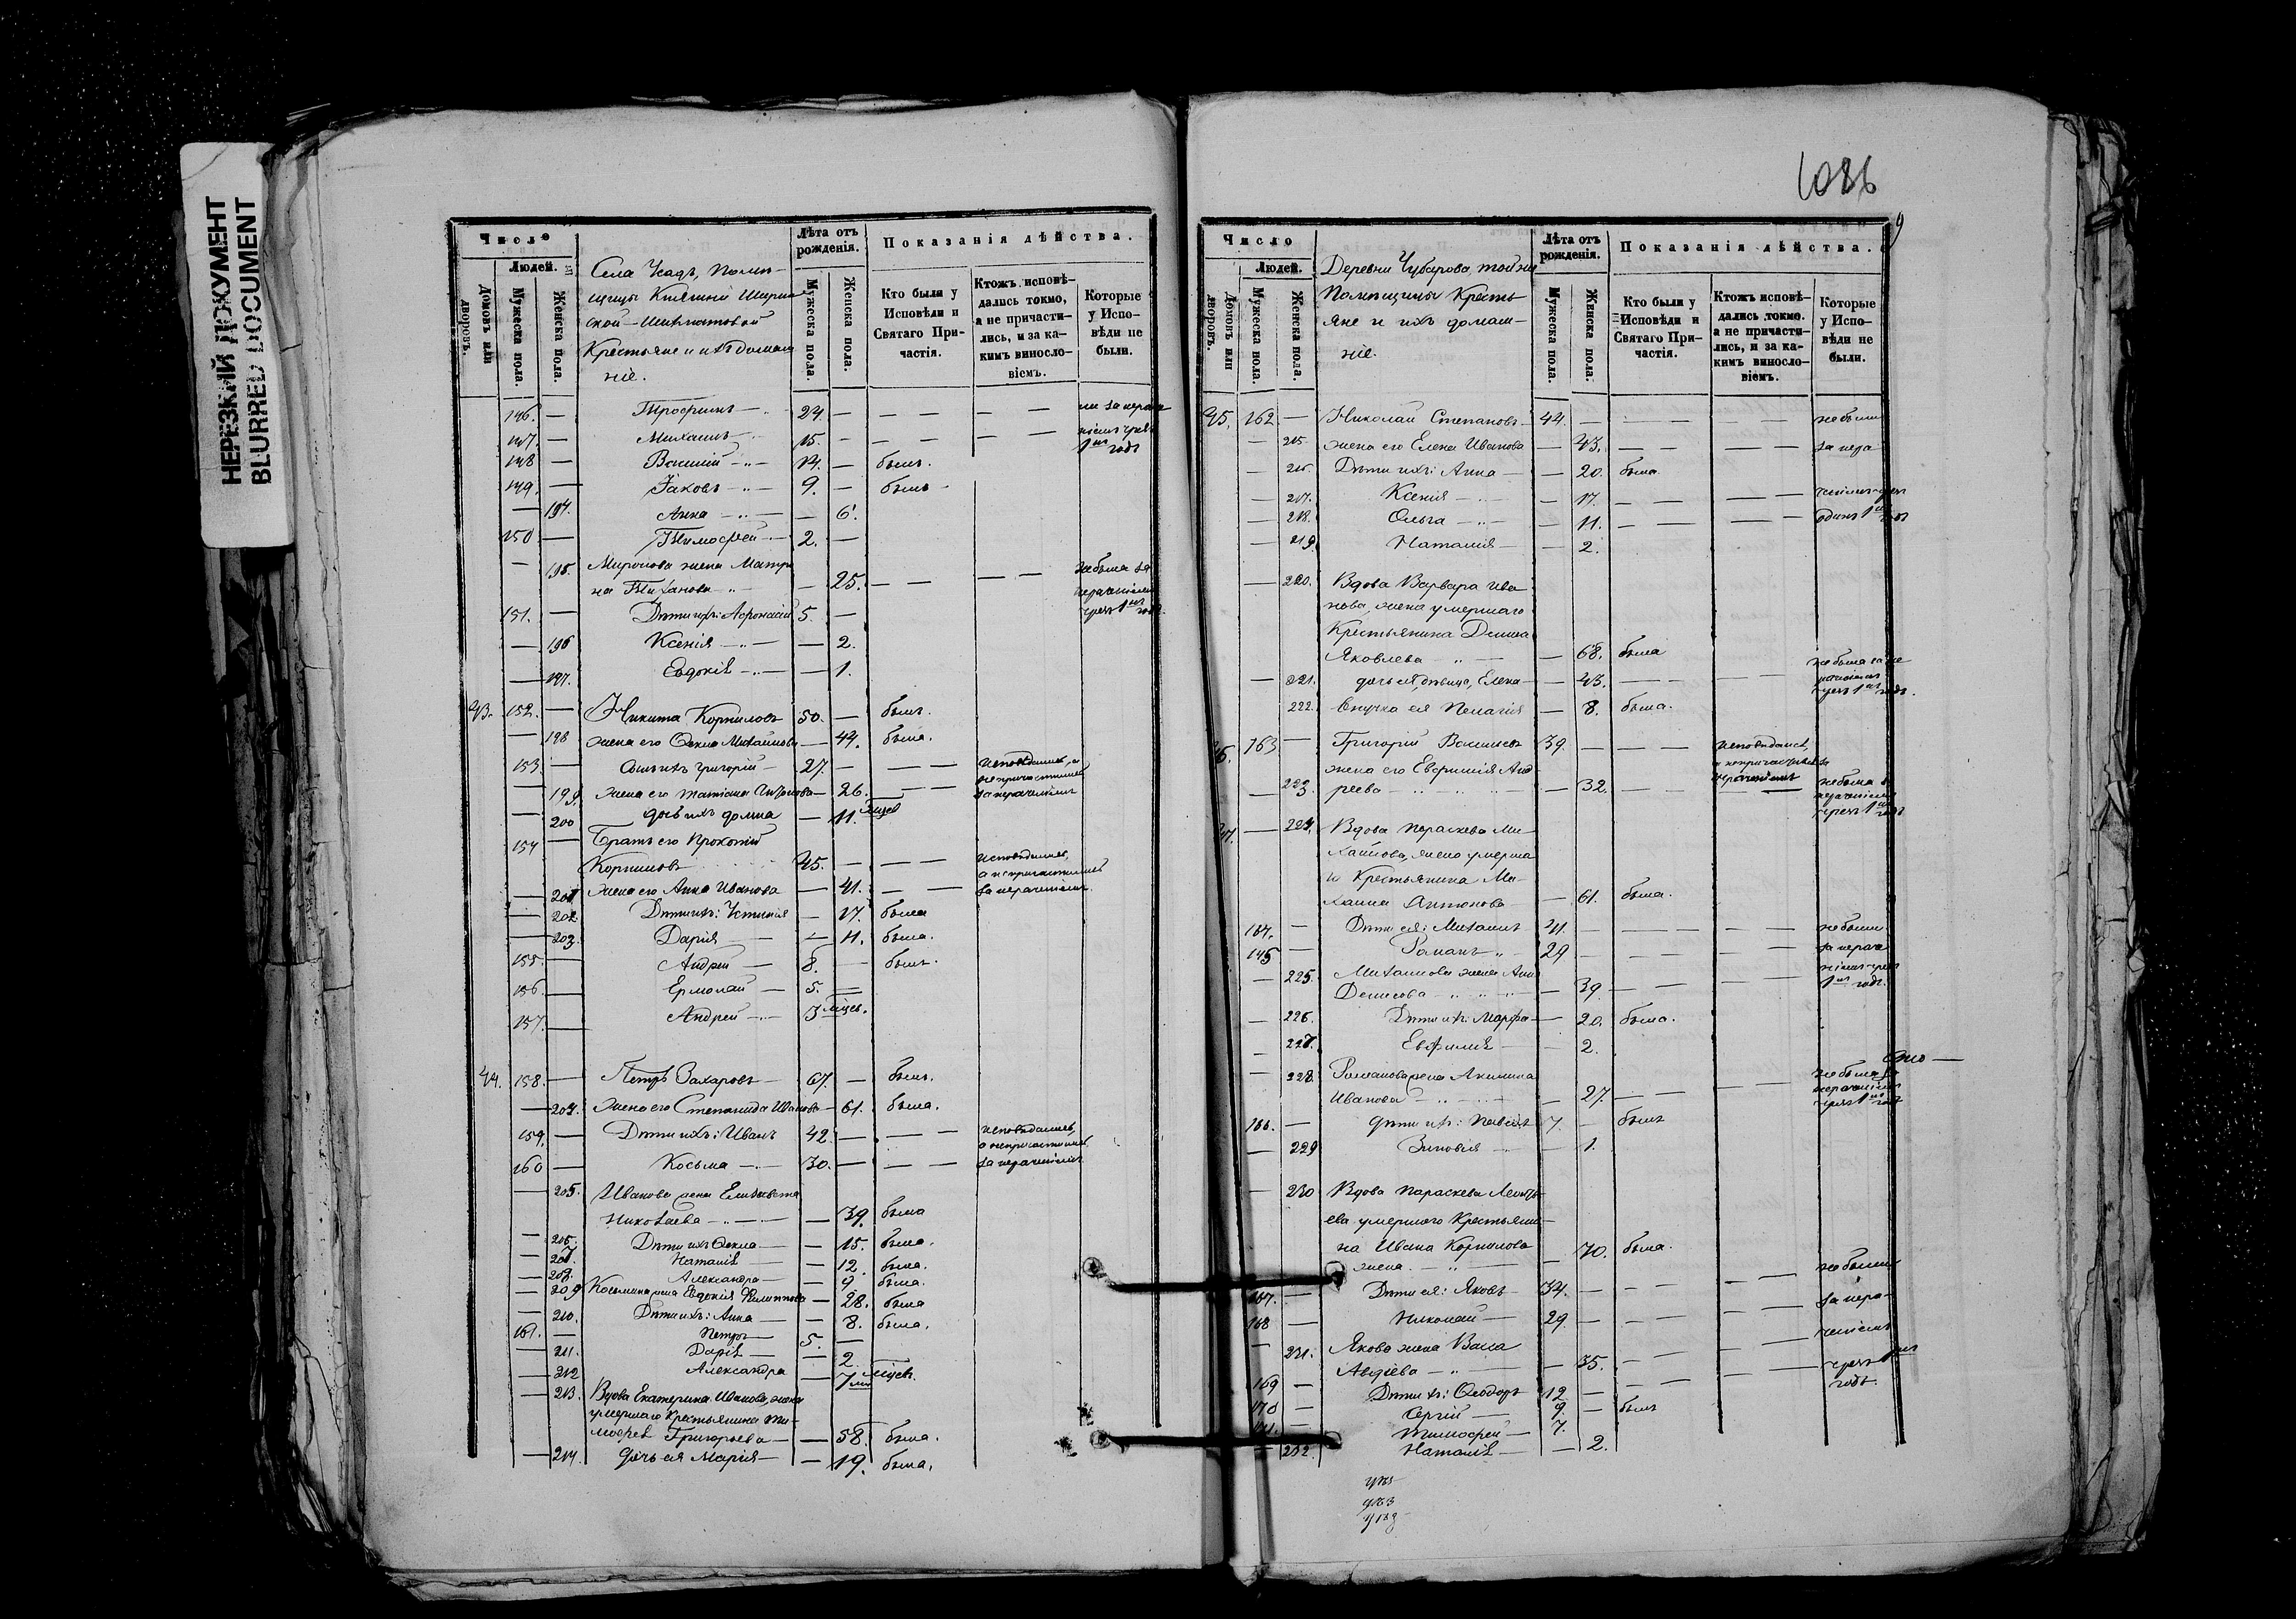 НЕРЕЗКИЙ ДОКУМЕНТ
BLURRED DOCUMENT
Число
Людей.
Домовъ или дворовъ.
Мужеска пола.
Женска пола.
Села Усадъ, помѣ-
щицы Княгини
Крестьяне и ихъ домаш
ніе.
Лѣта отъ рожденія.
Мужеска пола.
Женска пола.
Показанія дѣйства.
Кто были у Исповѣди и Святаго Причастія.
Ктожъ исповѣдались токмо, а не причастились, и за какимъ винословіемъ.
Которые у Исповѣди не были.
146. — Трофимъ — 24. — — —
147. — Михаилъ — 15. — — —
148 — Василій — 14. — былъ.
149. — Іаковъ — 9. — былъ
— 194. Анна — — 6.
150 — Тимофей — 2. —
— 195. Миронова жена Матре
на Тиханова — 25. — — — не была за нераченіемъ чрез 1 годъ
151. — Дѣти ихъ: Афонасій 5. —
— 196 Ксенія — — 2.
— 197. Евдокія — — 1.
43. 152. — Никита Корниловъ 50. — былъ.
— 198 жена его Ѳекла Михайлова — 44. была.
153. — Сынъ ихъ Григорій — 27. — — — исповѣдались, а не причастились за нераченіемъ
— 199. жена его Татіана — 26. — —
— 200 дочь ихъ Домна — 11. мцев
154 — Братъ его Прокопій
Корниловъ 45. — — — исповѣдались, а не причастились за нераченіемъ.
— 201 жена его Анна Иванова — 41. — —
— 202 Дѣти ихъ: Устинія — 17. была
— 203. Дарія — — 11. была.
155. — Андрей — 8. — былъ.
156. — Ермолай — 5. —
157. — Андрей — 3 мцев.
44. 158. — Петръ Захаровъ — 67. — былъ.
— 204. жена его Степанида Иванова — 61. была.
159. — Дѣти ихъ: Иванъ 42. — — — исповѣдались, а не причастились, за нераченіемъ
160 — Косьма — 30. — — —
— 205. Иванова жена Елизавета
Николаева — — 39. была
— 206. Дѣти ихъ Ѳекла — — 15. была.
— 207. Наталія — — 12. была.
— 208. Александра — — 9. была.
— 209 Косьмина жена Евдокія Филиппова — 28. была
— 210. Дѣти ихъ: Анна — — 8. была.
161. — Петръ — 5. —
— 211. Дарія — — 2.
— 212 Александра — 7 мцев.
— 213. Вдова Екатерина Иванова, жена
умершаго Крестьянина Ти-
мофея Григорьева — — 58. была.
— 214. Дочь ея Марія — — 19. была.
1086
Число
Людей.
Домовъ или дворовъ.
Мужеска пола.
Женска пола.
Деревни Чубарова, той же
Помѣщицы Кресть-
яне и ихъ домаш-
ніе.
Лѣта отъ рожденія.
Мужеска пола.
Женска пола.
Показанія дѣйства.
Кто были у Исповѣди и Святаго Причастія.
Ктожъ исповѣдались токмо. а не причастились, и за какимъ винословіемъ.
Которые у Исповѣди не были.
45. 162 — Николай Степановъ 44. — — — не были
— 215. жена его Елена Иванова — 43. — — за нера
— 216. Дѣти ихъ: Анна — — 20. была.
— 217. Ксенія — — 17. — — ченіемъ чрез
— 218. Ольга — — 11. — — одинъ 1 годъ
— 219. Наталія — — 2.
— 220. Вдова Варвара Ива
нова, жена умершаго
Крестьянина Дениса
Яковлева — 68. была
— 221. дочь ея, дѣвица, Елена — 43. — — не была за нераченіемъ чрез 1 годъ.
— 222. Внучка ея Пелагія — 8. была.
46. 163 — Григорій Васильевъ 39. — — исповѣдался, а не причастился за нераченіемъ
— 223. жена его Евфимія Анд
реева — 32. — — не была за нераченіемъ чрез 1 годъ
47. — 224. Вдова Параскева Ми-
хайлова, жена умерша
го Крестьянина Ми-
хаила Антонова — 61. была.
164. — Дѣти ея: Михаилъ 41. — — — не были
165 — Романъ — 29 — — — за нераче
— 225. Михайлова жена Анна
Денисова — 39. — — ніемъ чрез 1 годъ.
— 226. Дѣти ихъ: Марфа — — 20. была.
— 227. Евфимія — — 2.
— 228. Романова жена Акилина
Иванова — 27. — — не была за нераченіемъ чрез 1 годъ
166. — Дѣти ихъ: 7. — былъ
— 229 Зиновія — — 1.
— 230 Вдова Параскева Леонть-
ева умершаго Крестьяни-
на Ивана Корнилова
жена. — 70. была.
167. — Дѣти ея: Яковъ — 34. — — не были
168 — Николай — 29. — — за нера-
— 231. Якова жена Васса
Авдіева — — 35. — — ченіемъ
169 — Дѣти ихъ: Ѳеодоръ 12. — чрезъ 1 годъ.
170 — Сергій — 9. — былъ
171. — Тимофей — 7.
— 232. Наталія — — 2.